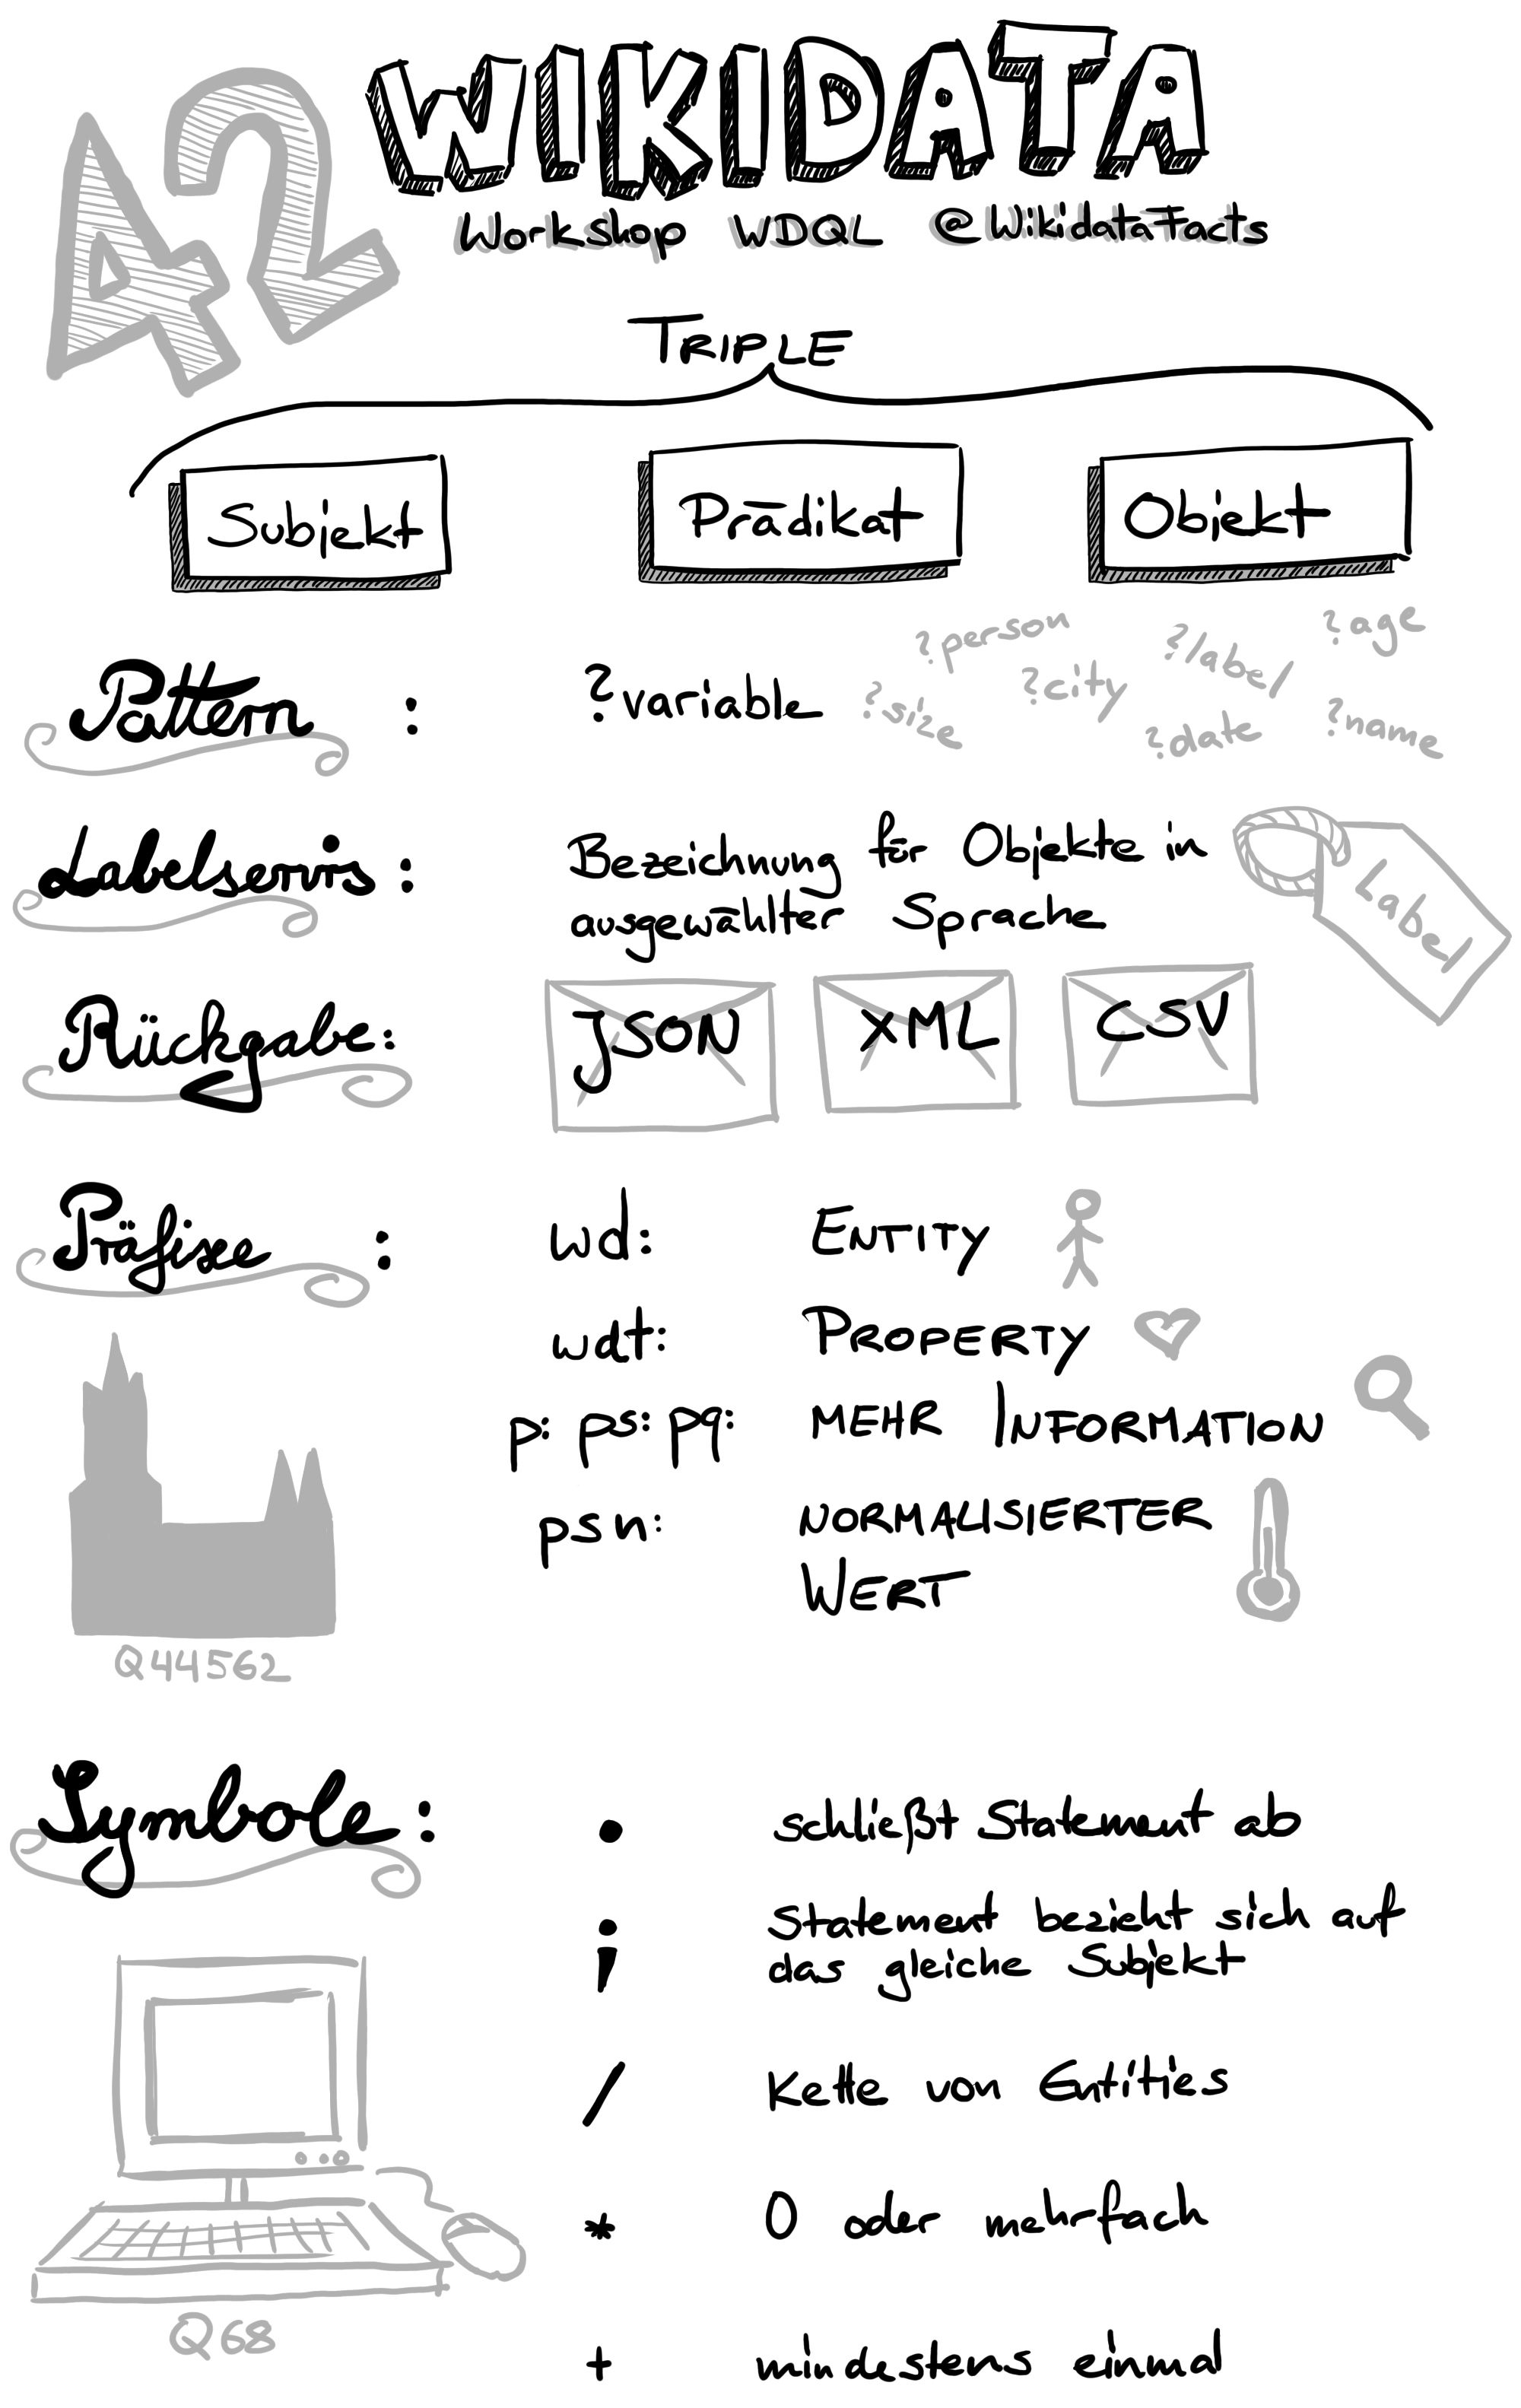 42
WIKIDATA
Workshop WDQL @WikidataFacts
TRIPLE
Subjekt Prädikat Objekt
Pattern : ?variable ?person ?label ?age
?size ?city ?date ?name
Labelservis : Bezeichnung für Objekte in
ausgewählter Sprache
Label
Rückgabe: JSON XML CSV
Präfixe : wd: ENTITY
wdt: PROPERTY
p: ps: pq: MEHR INFORMATION
psn: NORMALISIERTER
WERT
Q44562
Symbole : . schließt Statement ab
; Statement bezieht sich auf
das gleiche Subjekt
/ Kette von Entities
* 0 oder mehrfach
Q68
+ mindestens einmal